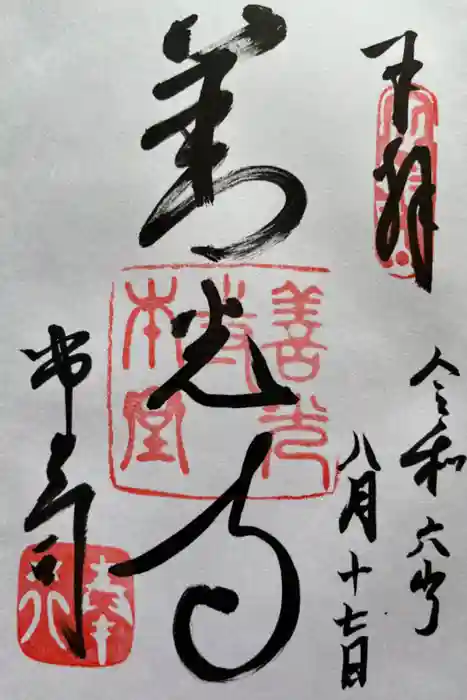 奉拝
令和六年
八月十七日
善光寺
善光寺本堂